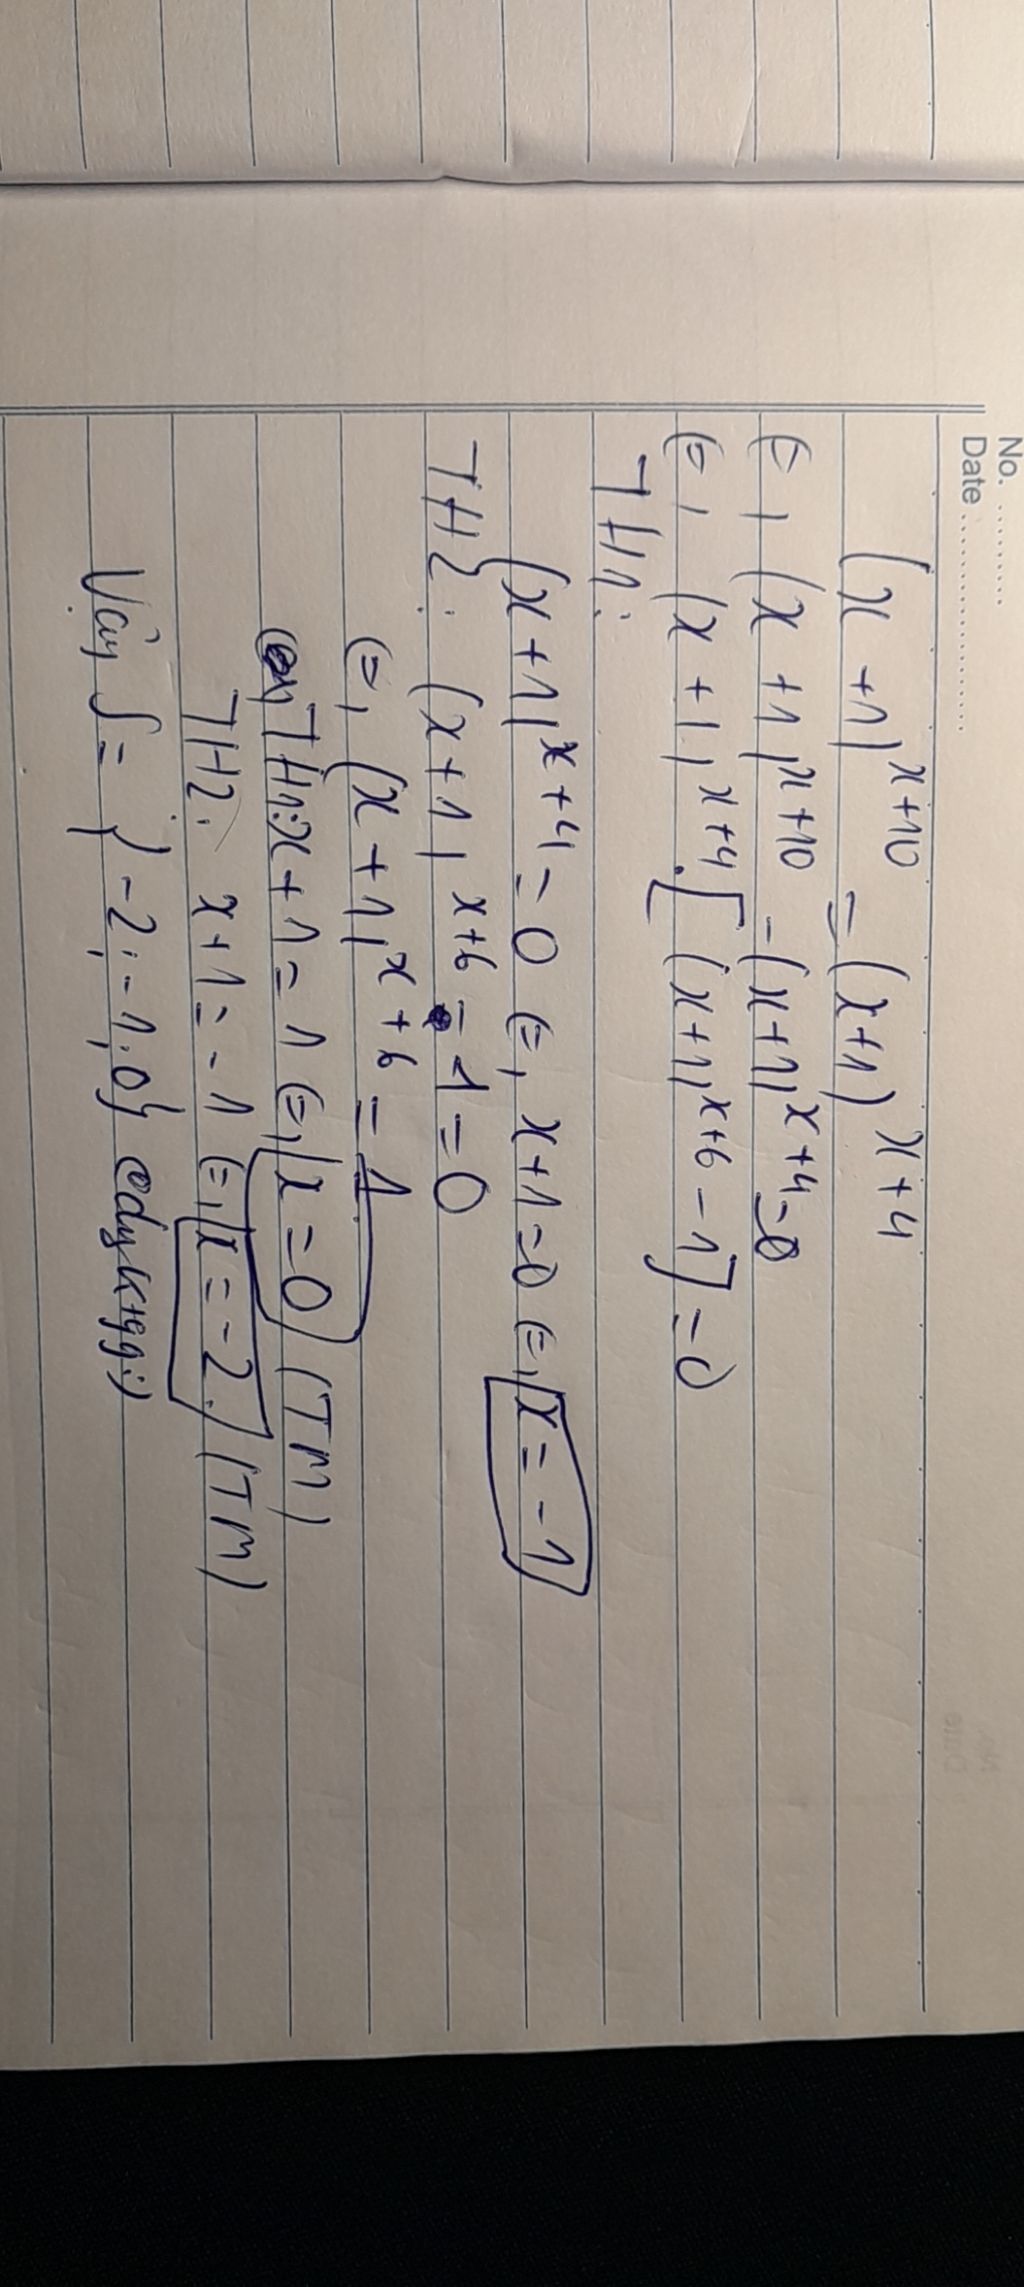 No. .........
Date .....................
(x+1)^{x+10} = (x+1)^{x+4}
⇔ (x+1)^{x+10} - (x+1)^{x+4} = 0
⇔ (x+1)^{x+4} . [(x+1)^{x+6} - 1] = 0
TH1:
(x+1)^{x+4} = 0 ⇔ x+1=0 ⇔ x = -1
TH2: (x+1)^{x+6} - 1 = 0
⇔ (x+1)^{x+6} = 1
TH1: x+1 = 1 ⇔ x = 0 (TM)
TH2: x+1 = -1 ⇔ x = -2. (TM)
Vậy S = {-2; -1; 0}